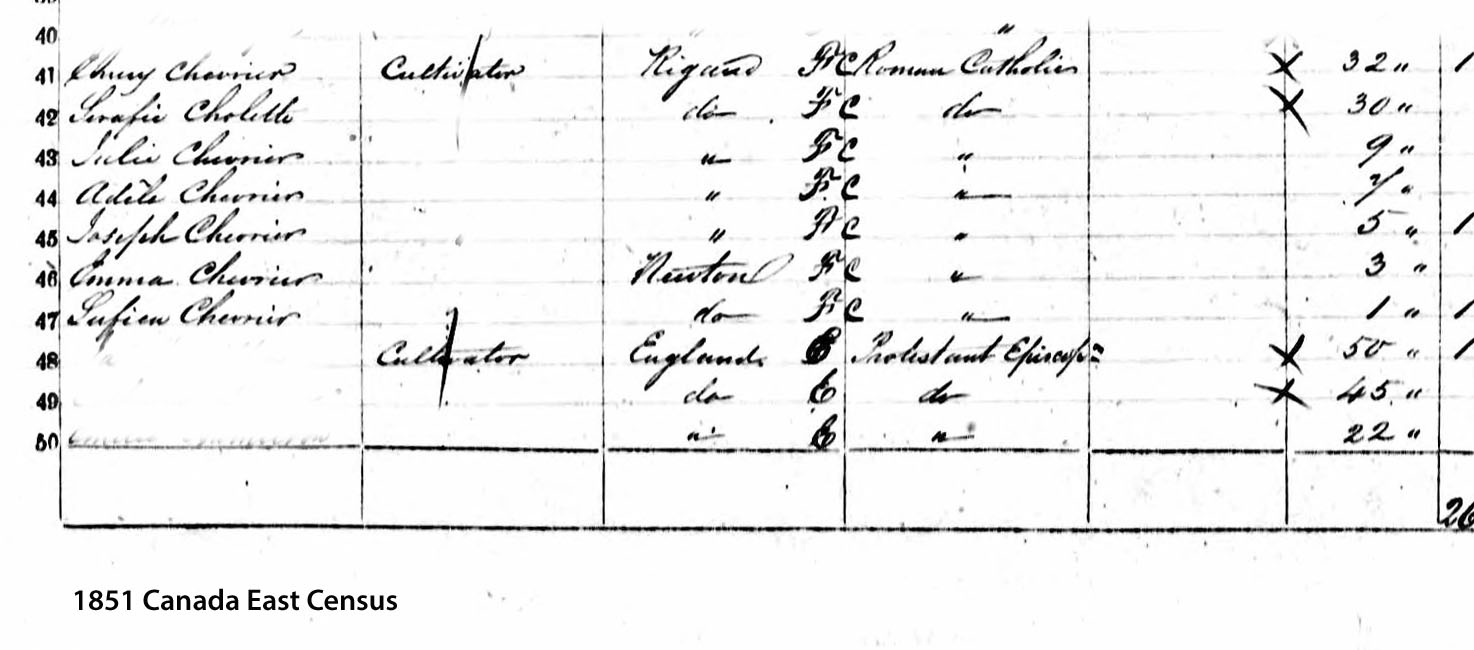 40 "
41 Chevrier Cultivator Rigaud F C Roman Catholic X 32 " 1
42 Serafie Cholette do F C do X 30 "
43 Julie Chevrier " F C " 9 "
44 Adèle Chevrier " F. C " 7 "
45 Joseph Chevrier " F C " 5 " 1
46 Emma Chevrier Newton F C " 3 "
47 Chevrier do F C " 1 " 1
48 Cultivator England E Protestant X 50 " 1
49 do E do X 45 "
50 " E " 22 "
26
1851 Canada East Census